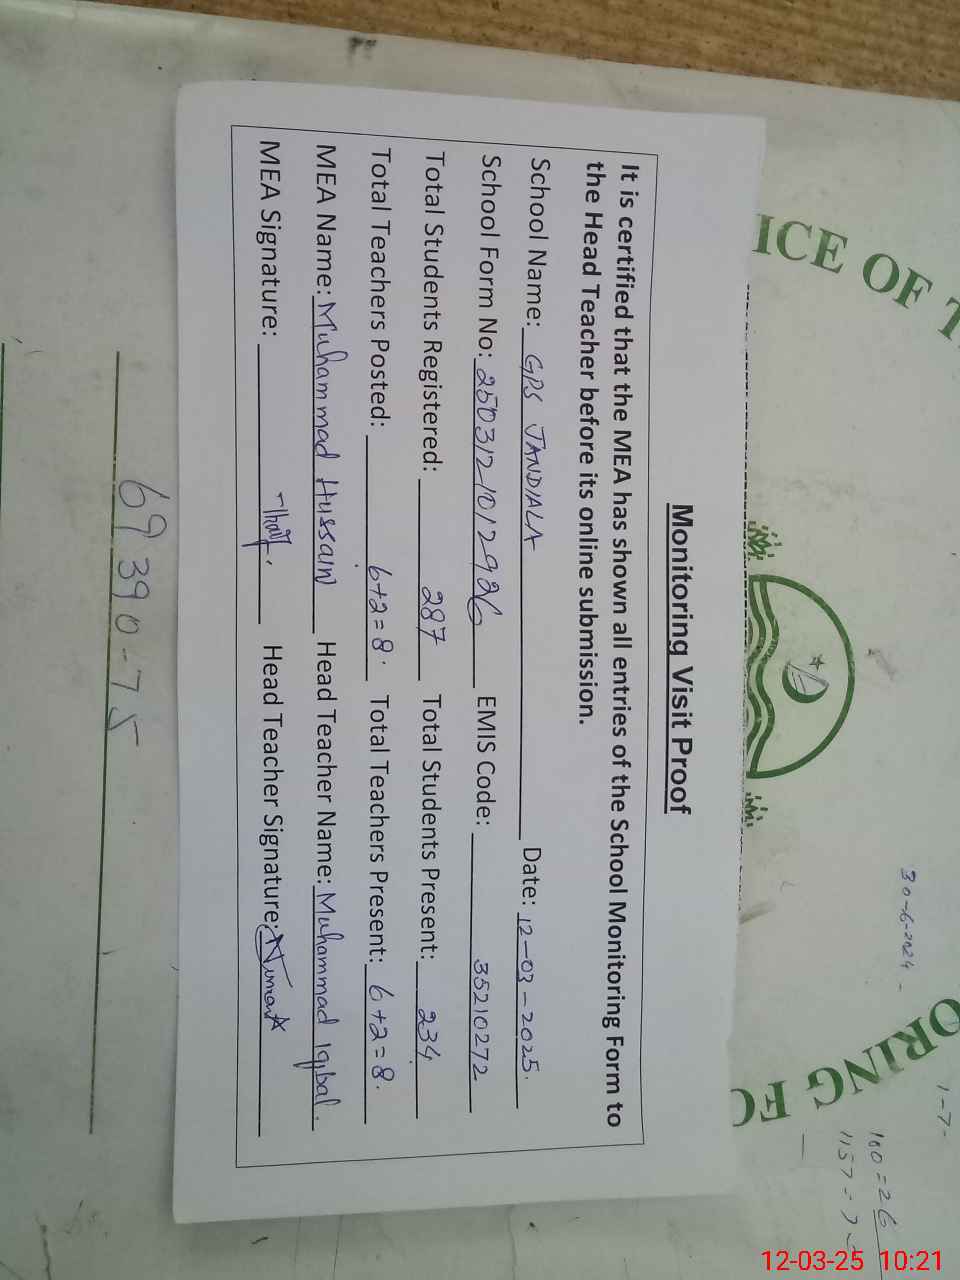 Monitoring Visit Proof
It is certified that the MEA has shown all entries of the School Monitoring Form to
the Head Teacher before its online submission.
School Name: GPS JANDIALA Date: 12-03-2025.
School Form No: 250312-1012926 EMIS Code: 35210272
Total Students Registered: 287 Total Students Present: 234
Total Teachers Posted: 6+2=8. Total Teachers Present: 6+2=8.
MEA Name: Muhammad Hussain Head Teacher Name: Muhammad Iqbal.
MEA Signature: Head Teacher Signature:
ICE OF T
ORING FO
30-6-2024 -
1-7-
100=26
69390-75
12-03-25 10:21